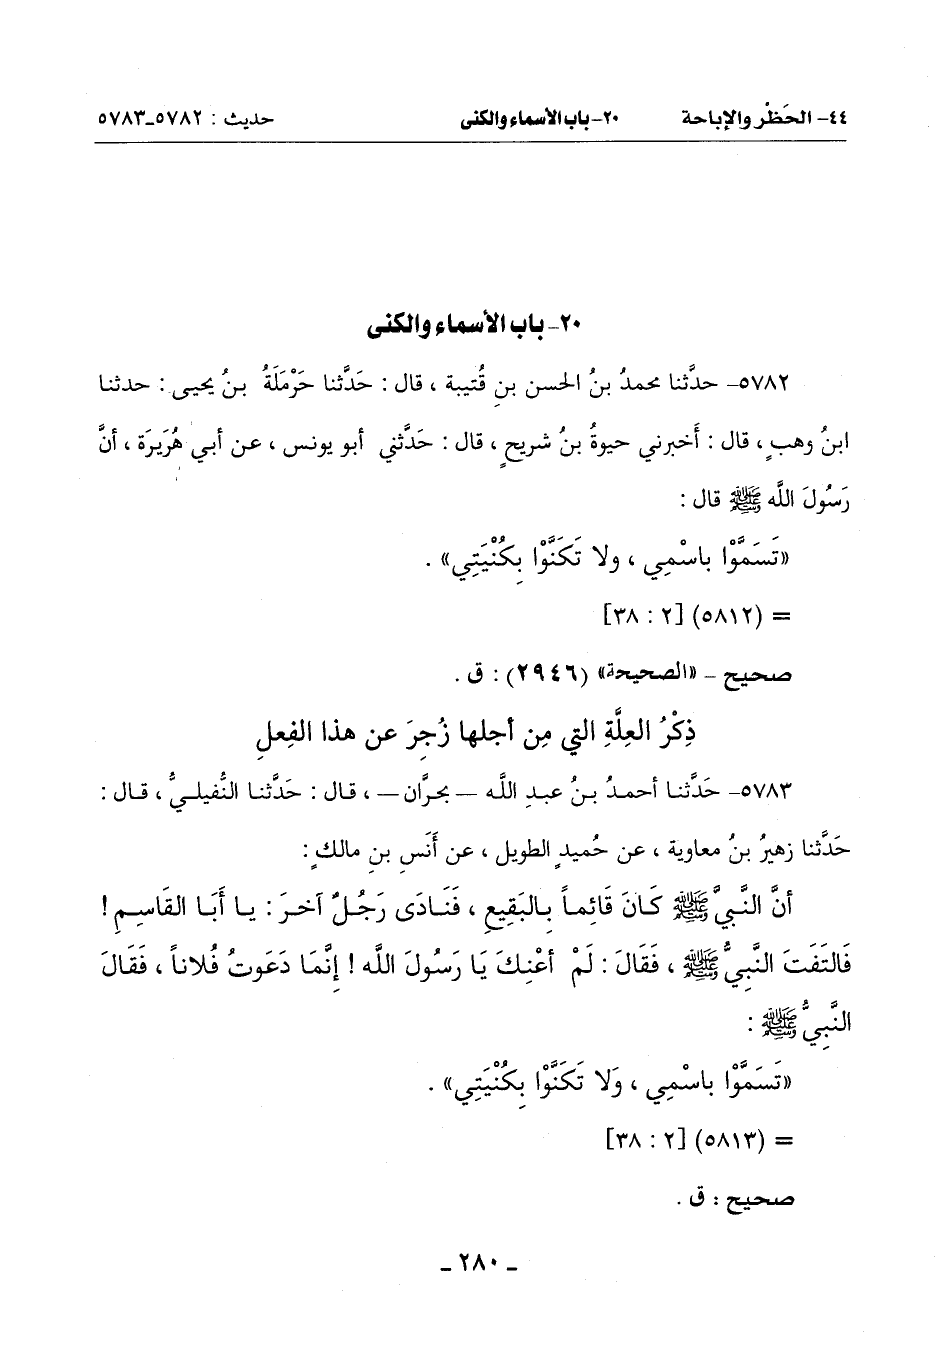 ٤٤- الحَظْر والإباحة ٢٠- باب الأسماء والكنى حديث : ٥٧٨٢_٥٧٨٣
٢٠- باب الأسماء والكنى
٥٧٨٢- حدَّثنا محمدُ بنُ الحسن بنِ قُتيبة ، قال : حَدَّثنا حَرْمَلَةُ بنُ يحيى : حدثنا
ابنُ وهبٍ ، قال : أَخبرني حيوةُ بنُ شريحٍ ، قال : حَدَّثني أبو يونس ، عن أبي هُرَيرَة ، أنَّ
رَسُولَ اللَّه ﷺ قال :
«تَسَمَّوْا باسْمِي ، ولا تَكَنَّوْا بِكُنْيَتِي» .
= (٥٨١٢) [٢ : ٣٨]
صحيح – «الصحيحة» (٢٩٤٦) : ق .
ذِكْرُ العِلَّةِ التي مِن أجلها زُجِرَ عن هذا الفِعلِ
٥٧٨٣- حَدَّثنا أحمدُ بنُ عبدِ اللَّه — بحرَّان — ، قال : حَدَّثنا النُّفيليُّ ، قال :
حَدَّثنا زهيرُ بنُ معاوية ، عن حُميدٍ الطويل ، عن أَنَسِ بنِ مالكٍ :
أنَّ النَّبيَّ ﷺ كَانَ قَائِماً بِالبَقِيعِ ، فَنَادَى رَجُلٌ آخرَ : يا أَبَا القَاسِمِ !
فَالتَفَتَ النَّبِيُّ ﷺ ، فَقَالَ : لَمْ أعْنِكَ يَا رَسُولَ اللَّه ! إِنَّمَا دَعَوتُ فُلاناً ، فَقَالَ
النَّبِيُّ ﷺ :
«تَسَمَّوْا باسْمِي ، وَلا تَكَنَّوْا بِكُنْيَتِي» .
= (٥٨١٣) [٢ : ٣٨]
صحيح : ق .
ـ ٢٨٠ ـ